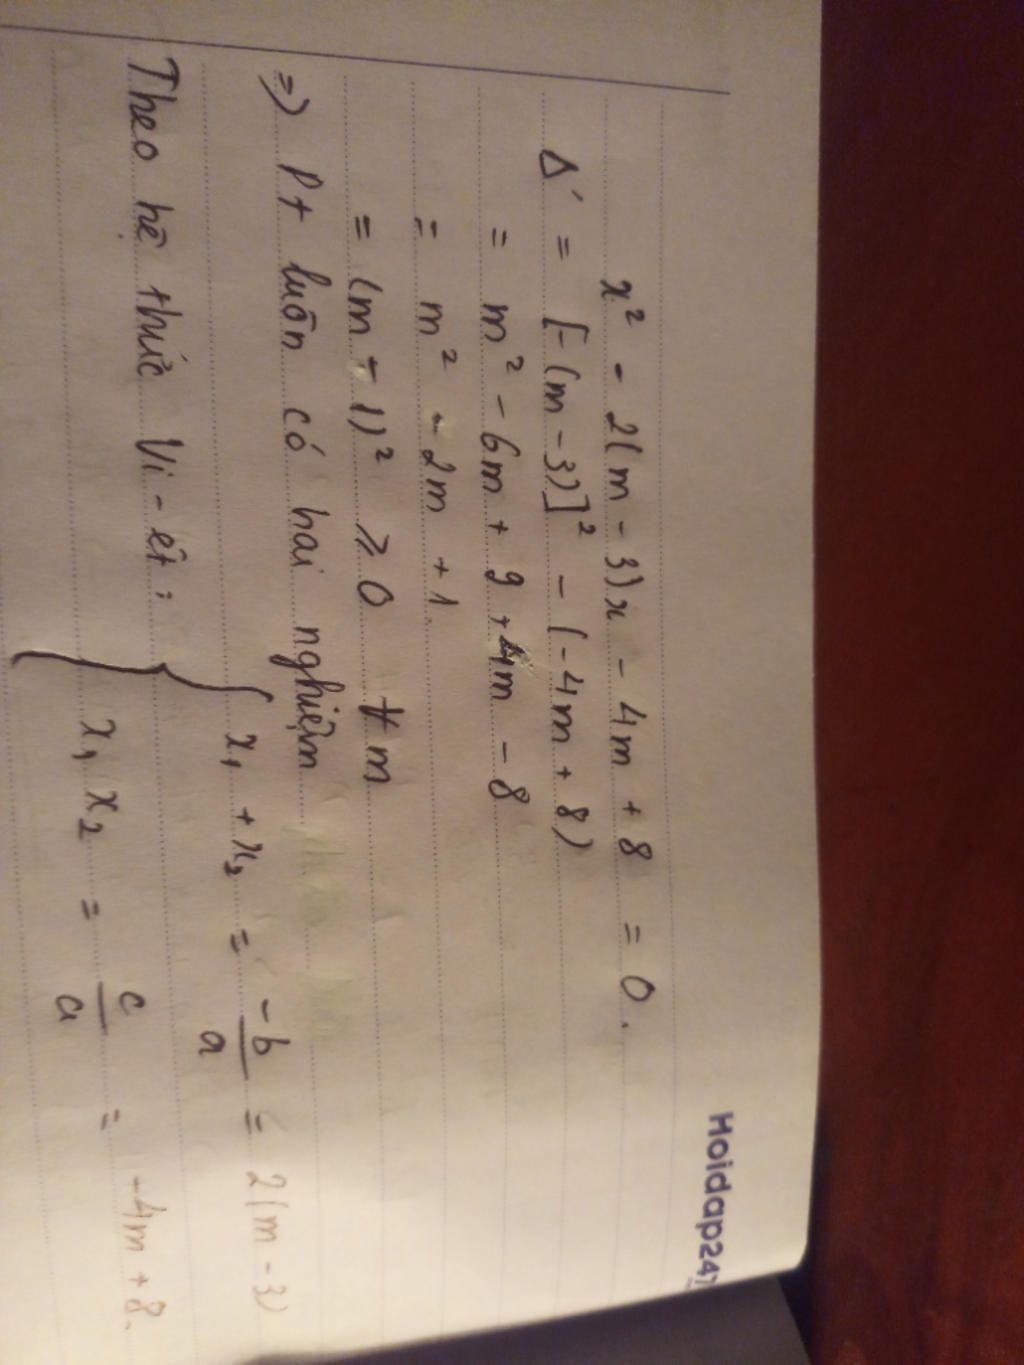 Hoidap247
x² - 2(m - 3)x - 4m + 8 = 0.
Δ' = [-(m - 3)]² - (-4m + 8)
= m² - 6m + 9 + 4m - 8
= m² - 2m + 1.
= (m - 1)² ⩾ 0 ∀m
=) Pt luôn có hai nghiệm
Theo hệ thức Vi-ét: { x₁ + x₂ = -b/a = 2(m - 3)
x₁ x₂ = c/a = -4m + 8.